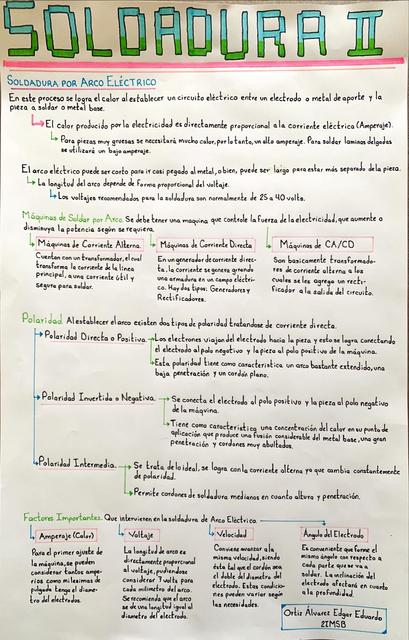 SOLDADURA II
SOLDADURA POR ARCO ELÉCTRICO
En este proceso se logra el calor al establecer un circuito eléctrico entre un electrodo o metal de aporte y la
pieza a soldar o metal base.
El calor producido por la electricidad es directamente proporcional a la corriente eléctrica (Amperaje).
Para piezas muy gruesas se necesitará mucho calor, por lo tanto, un alto amperaje. Para soldar laminas delgadas
se utilizará un bajo amperaje.
El arco eléctrico puede ser corto para ir casi pegado al metal, o bien, puede ser largo para estar más separado de la pieza.
La longitud del arco depende de forma proporcional del voltaje.
Los voltajes recomendados para la soldadura son normalmente de 25 a 40 volts.
Máquinas de Soldar por Arco. Se debe tener una maquina que controle la fuerza de la electricidad, que aumente o
disminuya la potencia según se requiera.
Máquinas de Corriente Alterna.
Cuentan con un transformador, el cual
transforma la corriente de la línea
principal, a una corriente útil y
segura para soldar.
Máquinas de Corriente Directa
En un generador de corriente direc-
ta, la corriente se genera girando
una armadura en un campo eléctri-
co. Hay dos tipos: Generadores y
Rectificadores.
Máquinas de CA/CD
Son basicamente transformado-
res de corriente alterna a los
cuales se les agrego un recti-
ficador a la salida del circuito.
Polaridad. Al establecer el arco existen dos tipos de polaridad tratandose de corriente directa.
Polaridad Directa o Positiva
Los electrones viajan del electrodo hacia la pieza y esto se logra conectando
el electrodo al polo negativo y la pieza al polo positivo de la máquina.
Esta polaridad tiene como caracteristica un arco bastante extendido, una
baja penetración y un cordón plano.
Polaridad Invertida o Negativa
Se conecta el electrodo al polo positivo y la pieza al polo negativo
de la máquina.
Tiene como caracteristica una concentración del calor en su punto de
aplicación que produce una fusión considerable del metal base, una gran
penetración y cordones muy abultados.
Polaridad Intermedia.
Se trata de lo ideal, se logra con la corriente alterna ya que cambia constantemente
de polaridad.
Permite cordones de soldadura medianos en cuanto altura y penetración.
Factores Importantes. Que intervienen en la soldadura de Arco Eléctrico.
Amperaje (Calor)
Para el primer ajuste de
la máquina, se pueden
considerar tantos ampe-
rios como milesimas de
pulgada tenga el diame-
tro del electrodo.
Voltaje
La longitud de arco es
directamente proporcional
al voltaje, pudiendose
considerar 1 volt para
cada milimetro del arco.
Se recomienda que el arco
se de una longitud igual al
diametro del electrodo.
Velocidad
Conviene avanzar a la
misma velocidad, siendo
ésta tal que el cordón sea
el doble del diametro del
electrodo. Estas condicio-
nes pueden variar según
las necesidades.
Ángulo del Electrodo
Es conveniente que forme el
mismo ángulo con respecto a
cada parte que se va a
soldar. La inclinación del
electrodo afectará en cuanto
a la profundidad.
Ortiz Álvarez Edgar Eduardo
2IM5B